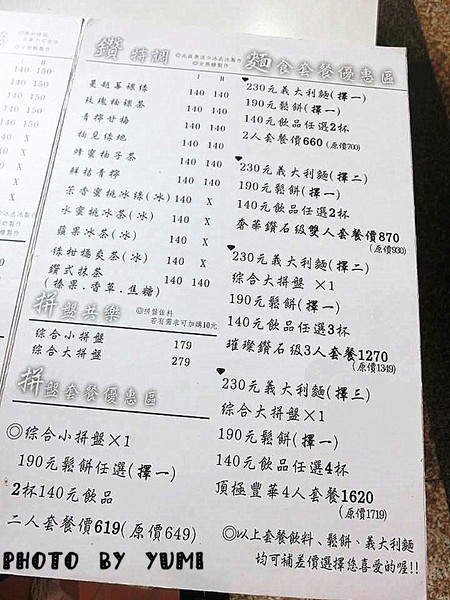 鑽 特調
I H
蔓越莓 140 140
玫瑰柚碟茶 140 140
青檸甘梅 140 140
柚見綠地 140 140
蜂蜜柚子茶 140 140
鮮桔青檸 140 140
茶香蜜桃冰綠(冰) 140 X
水蜜桃冰茶(冰) 140 X
蘋果冰茶(冰) 140 X
綠柑橘爽茶(冰) 140 X
鑽式抹茶 140 140
(榛果.香草.焦糖)
拼盤共樂
◎拼盤佐料
若有需求可加購10元
綜合小拼盤 179
綜合大拼盤 279
拼盤套餐優惠區
◎綜合小拼盤×1
190元鬆餅任選(擇一)
2杯140元飲品
二人套餐價619(原價649)
麵食套餐優惠區
230元義大利麵(擇一)
190元鬆餅(擇一)
140元飲品任選2杯
2人套餐價660(原價700)
230元義大利麵(擇二)
190元鬆餅(擇一)
140元飲品任選2杯
奢華鑽石級雙人套餐價870
(原價930)
230元義大利麵(擇二)
綜合大拼盤 ×1
190元鬆餅(擇一)
140元飲品任選3杯
璀璨鑽石級3人套餐1270
(原價1349)
230元義大利麵(擇三)
綜合大拼盤×1
190元鬆餅(擇一)
140元飲品任選4杯
頂極豐華4人套餐1620
(原價1719)
◎以上套餐飲料、鬆餅、義大利麵
均可補差價選擇您喜愛的喔!!
PHOTO BY YUMI